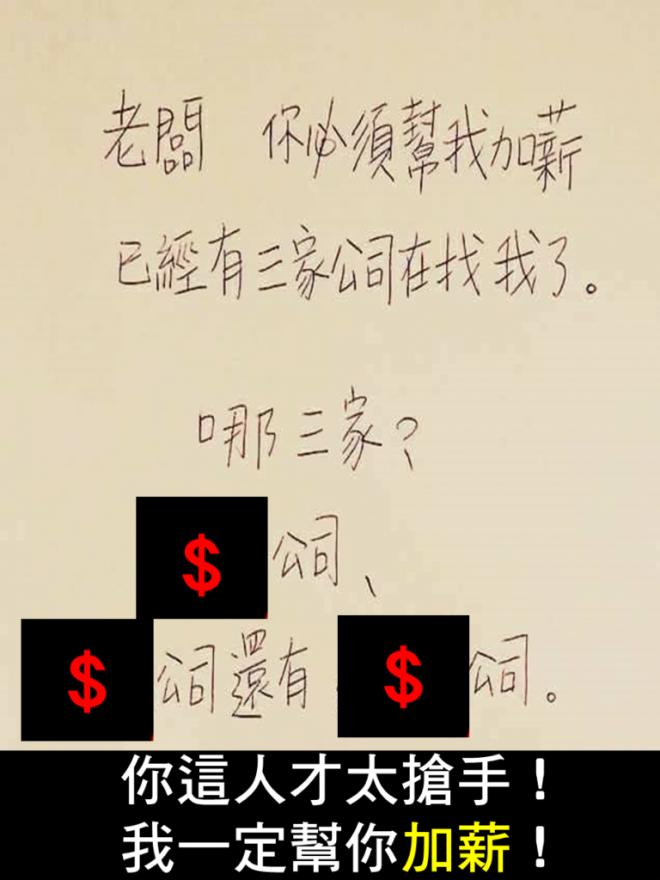 老闆 你必須幫我加薪
已經有三家公司在找我了。
哪三家?
$公司、
$公司還有$公司。
你這人才太搶手!
我一定幫你加薪!